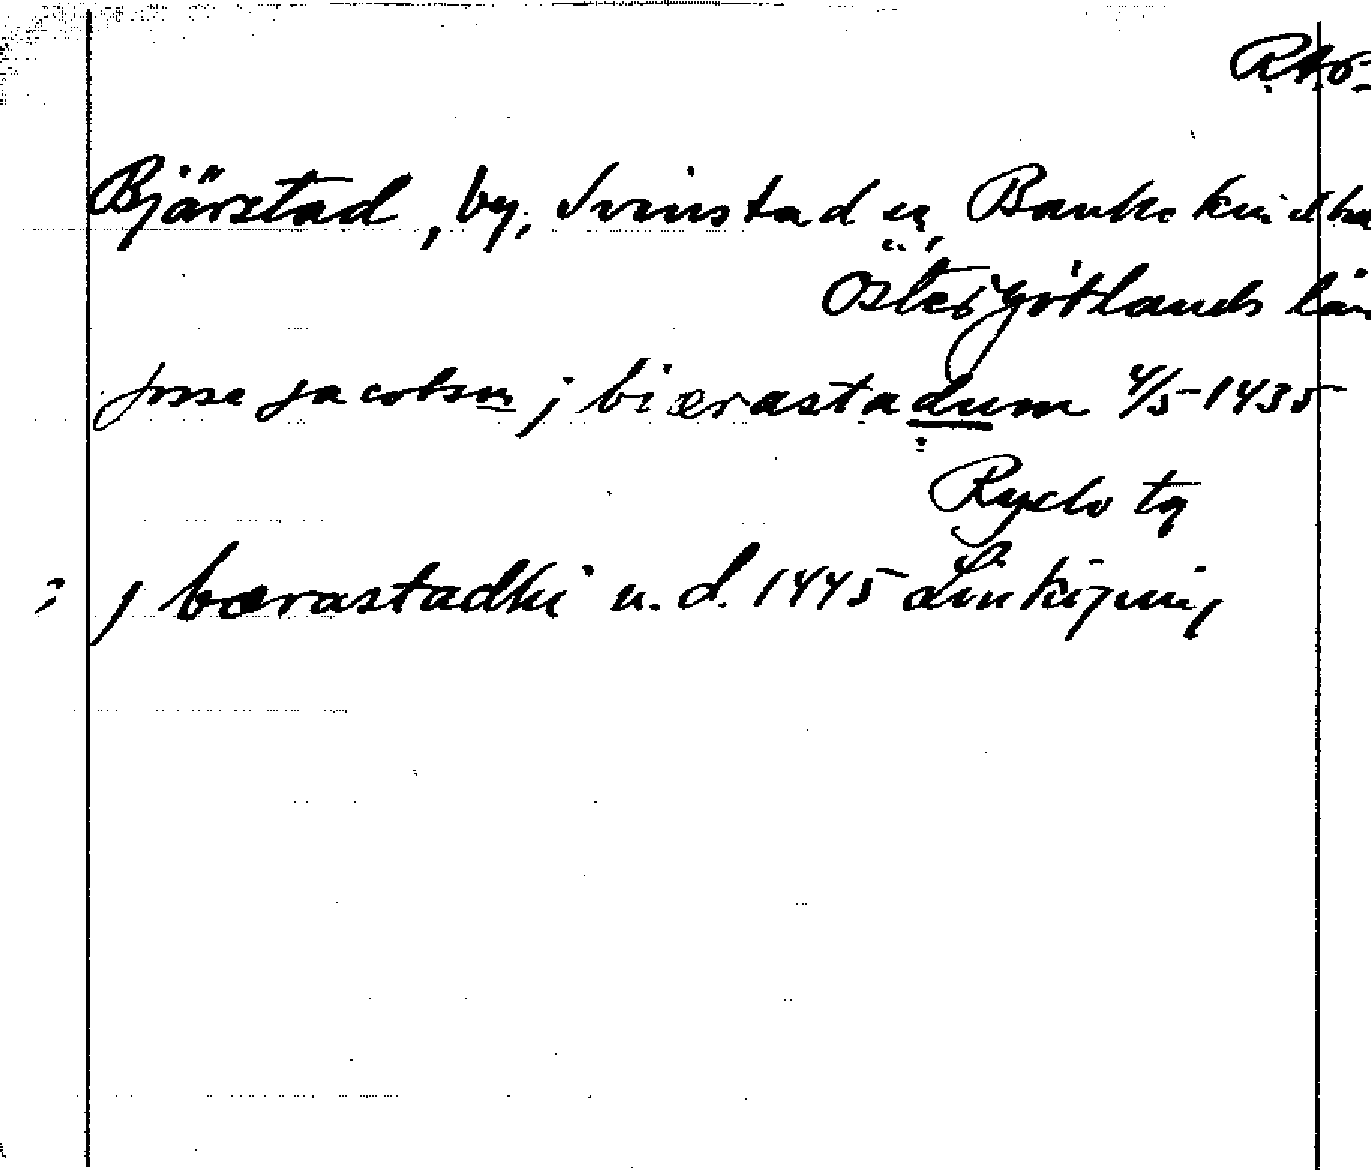 Bjärstad, by, Svinstad sn, Bankekind hd
Östergötlands län
Josse jacobsn j biærastadum 4/5 1435
Ryelo tg
j bærastadhi u. d. 1445 Linköping